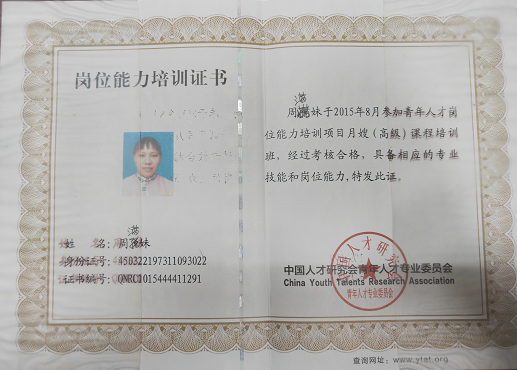 岗位能力培训证书
满
姓 名:周妹
身份证号:450322197311093022
证书编号:QNRC1015444411291
满
周妹于2015年8月参加青年人才岗
位能力培训项目月嫂(高级)课程培训
班,经过考核合格,具备相应的专业
技能和岗位能力,特发此证。
中国人才研究会青年人才专业委员会
China Youth Talents Research Association
中国人才研究会
青年人才专业委员会
查询网址:www.ytat.org